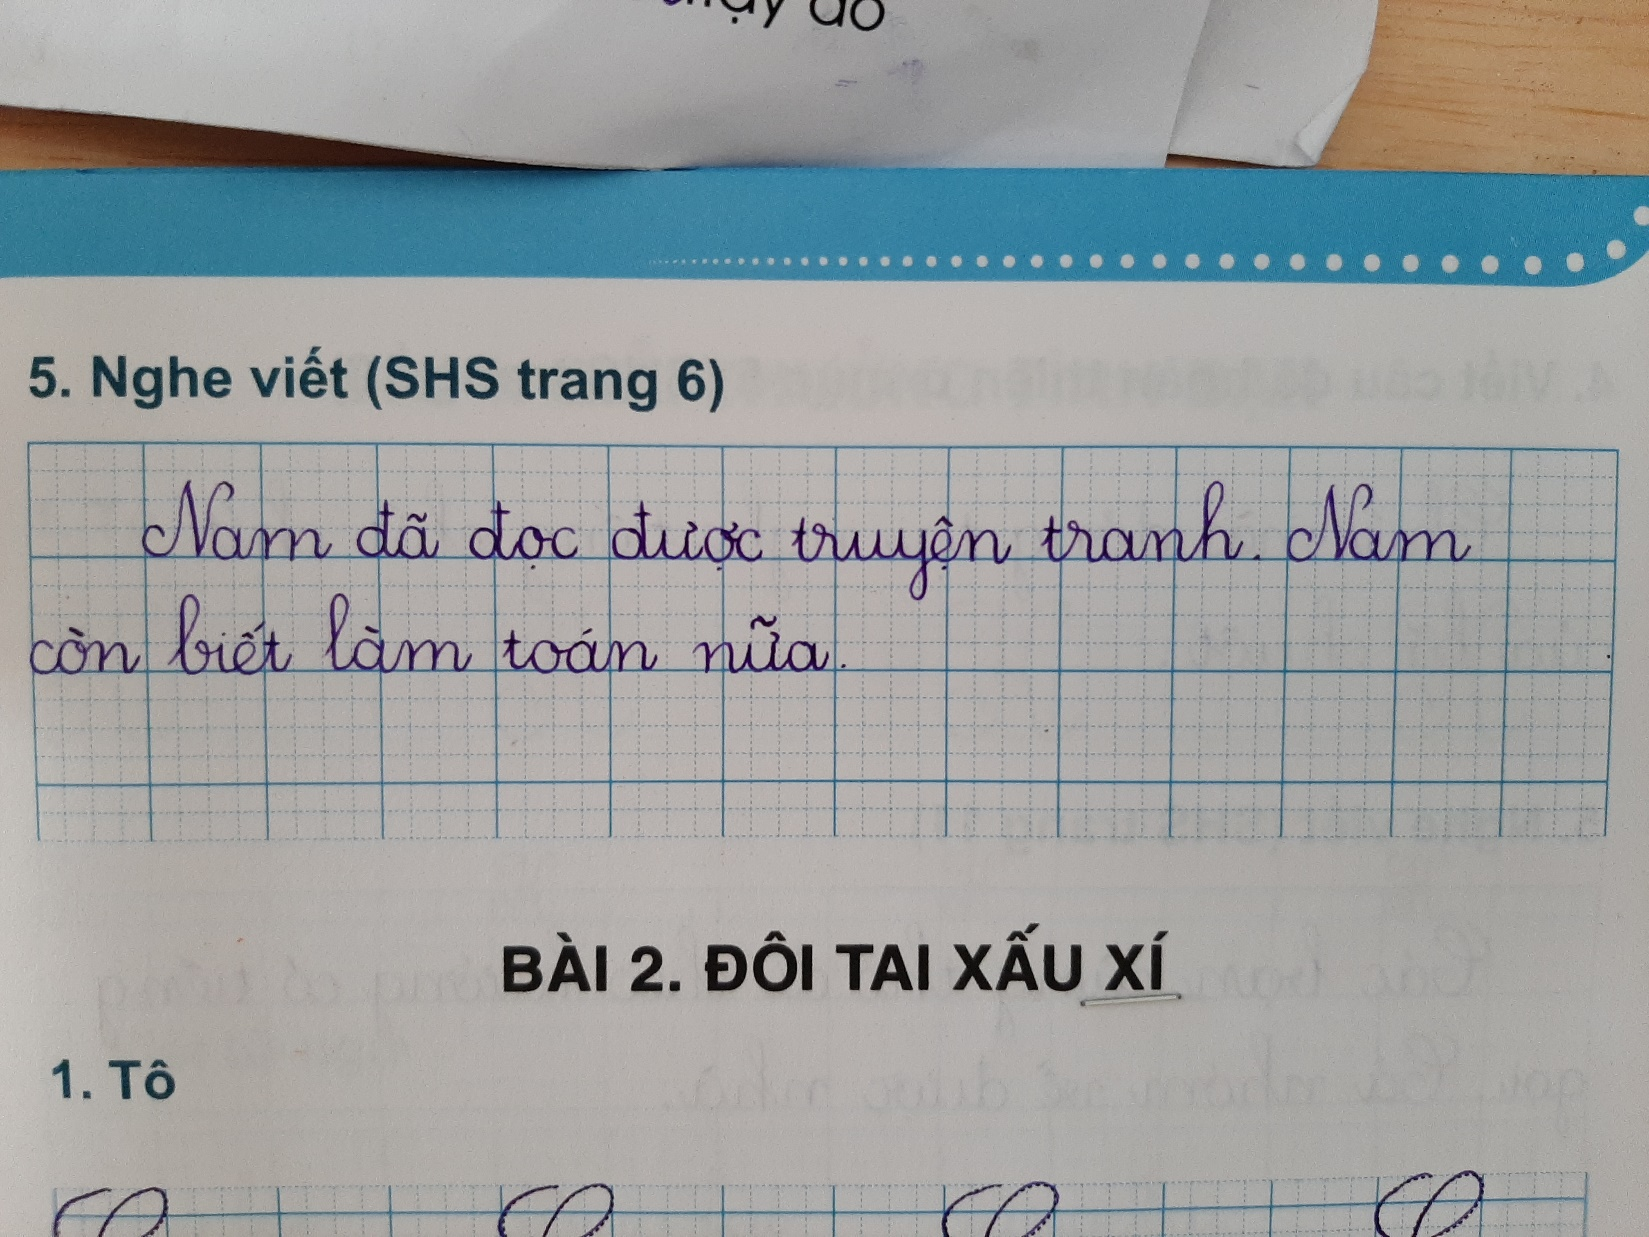 đỏ
5. Nghe viết (SHS trang 6)
Nam đã đọc được truyện tranh. Nam
còn biết làm toán nữa.
BÀI 2. ĐÔI TAI XẤU XÍ
1. Tô